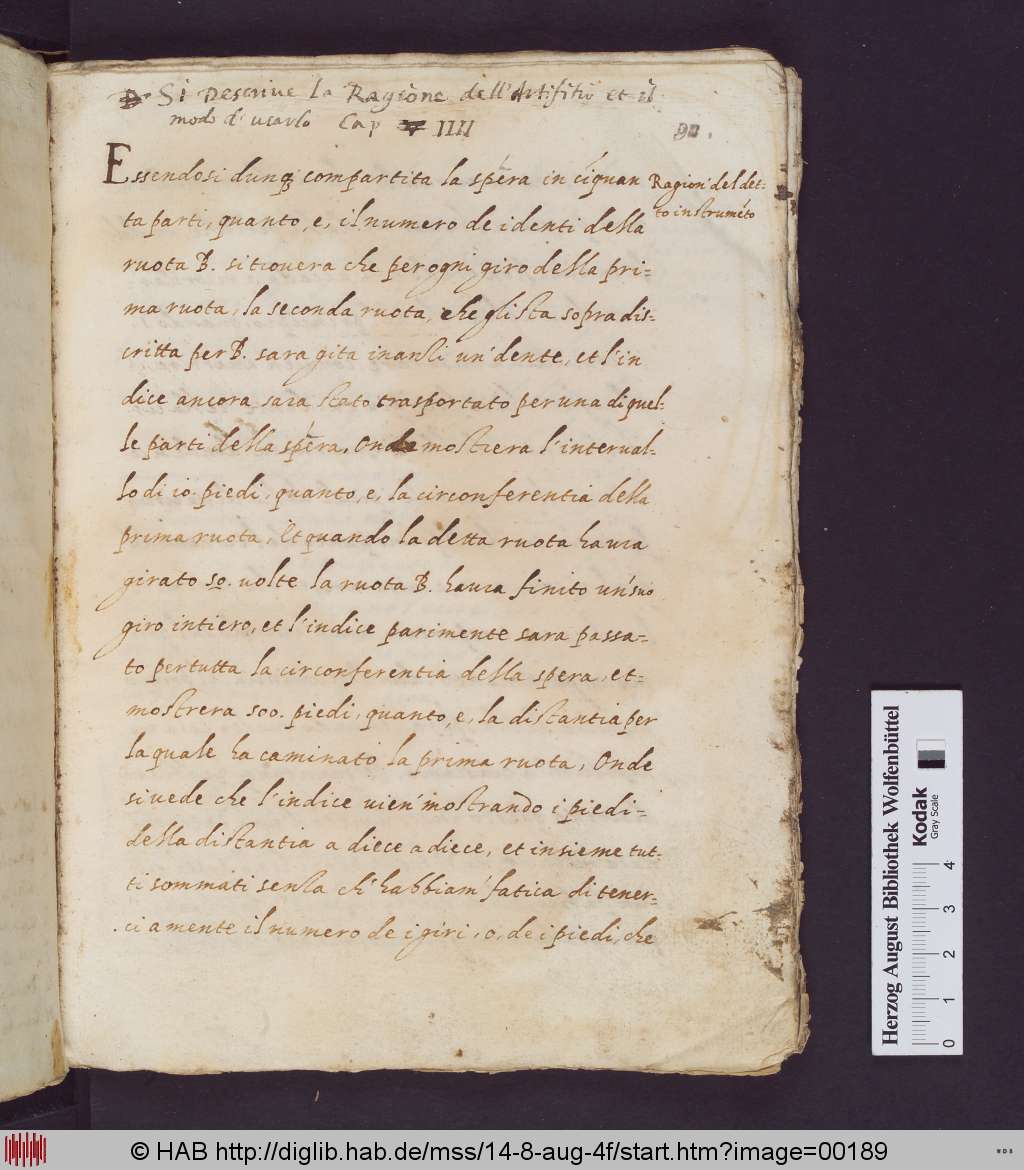 Si Descriue la Ragione dell'Artifitio et il
modo d'usarlo Cap IIII
90.
Essendosi dunq compartita la spera in ciquan
ta parti, quanto, e, il numero de i denti della
ruota B. si trouera che per ogni giro della pri=
ma ruota, la seconda ruota, che gli sta sopra dis=
critta per B. sara gita inanzi un' dente, et l'in
dice ancora sara stato trasportato per una di quel=
le parti della spera, Onde mostrera l'interual=
lo di 10. piedi, quanto, e, la circonferentia della
prima ruota, Et quando la detta ruota haura
girato 50. uolte la ruota B. haura finito un' suo
giro intiero, et l'indice parimente sara passa=
to per tutta la circonferentia della spera, et=
mostrera 500. piedi, quanto, e, la distantia per
la quale ha caminato la prima ruota, Onde
si uede che l'indice uien' mostrando i piedi=
della distantia a diece a diece, et insieme tut=
ti sommati senza ch' habbiam' fatica di tener=
ci a mente il numero de i giri, o, de i piedi, che
Ragion' del det=
to instrumeto
Herzog August Bibliothek Wolfenbüttel
Kodak
Gray Scale
0 1 2 3 4
© HAB http://diglib.hab.de/mss/14-8-aug-4f/start.htm?image=00189